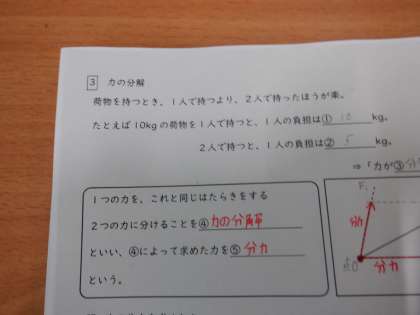 3 力の分解
荷物を持つとき、1人で持つより、2人で持ったほうが楽。
たとえば10kgの荷物を1人で持つと、1人の負担は① 10 kg。
2人で持つと、1人の負担は② 5 kg。
⇒「力が③分
1つの力を、これと同じはたらきをする
2つの力に分けることを④力の分解
といい、④によって求めた力を⑤ 分力
という。
F₁
分力
点O
分力